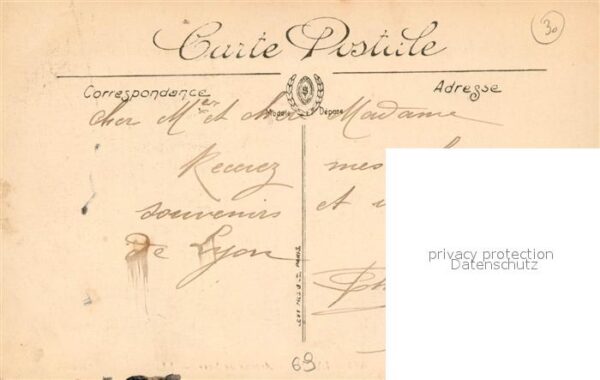 Carte Postale
30
Correspondance
Adresse
Modèle Déposé
Cher Mr et chère Madame
Recevez mes
souvenirs et
de Lyon
privacy protection
Datenschutz
69